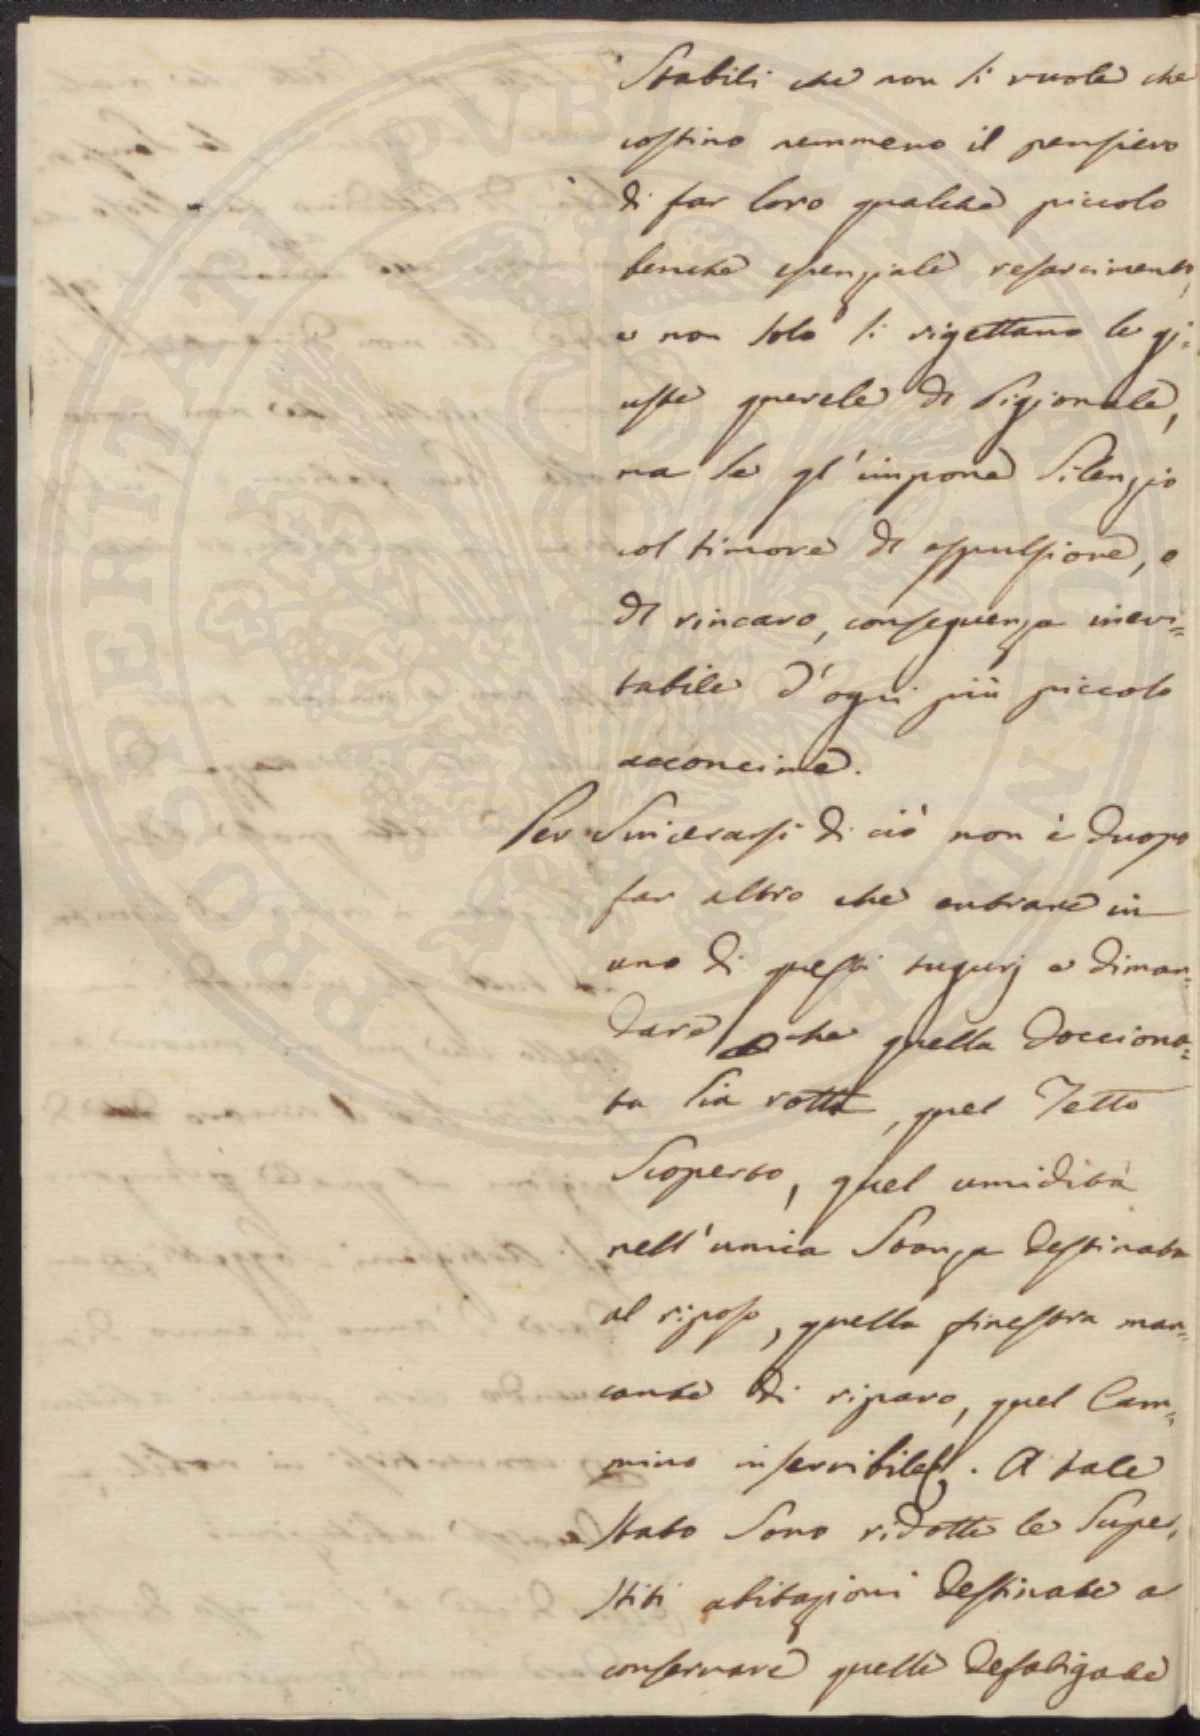 Stabili che non si vuole che
costino nemmeno il pensiero
di far loro qualche piccolo
benche essenziale resarcimento,
e non solo si rigettano le gi=
uste querele di Pigionale,
ma se gl'impone Silenzio
col timore di espulsione, e
di rincaro, conseguenza inevi=
tabile d'ogni più piccolo
acconcime.
Per Sincerarsi di ciò non è duopo
far altro che entrare in
uno di questi tugurj e diman=
dare che quella docciona=
ta sia rotta, quel Tetto
Scoperto, quel umidità
nell'unica Stanza destinata
al riposo, quella finestra man=
cante di riparo, quel Cam=
mino inservibile. A tale
stato Sono ridotte le Super=
stiti abitazioni destinate a
conservare quelle defatigate
PROSPERITATI PVBLICAE AVGENDAE